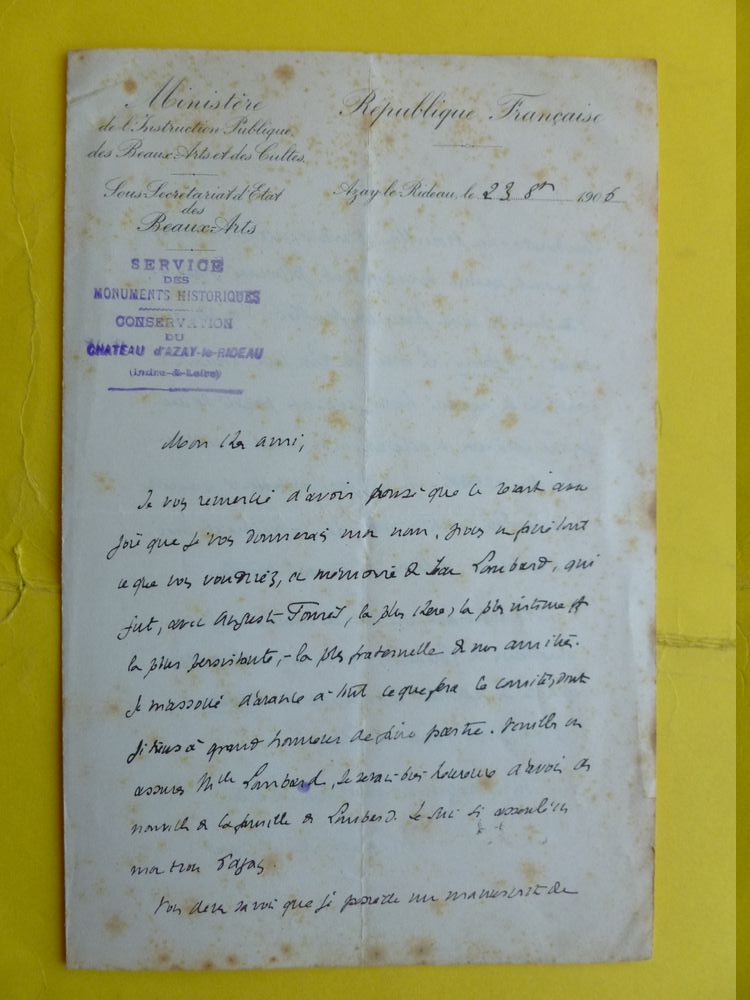 Ministère
de l'Instruction Publique
des Beaux-Arts et des Cultes
Sous-Secrétariat d'Etat
des
Beaux-Arts
République Française
Azay-le-Rideau, le 23 8bre 1906
SERVICE
DES
MONUMENTS HISTORIQUES
CONSERVATION
DU
CHATEAU d'AZAY-le-RIDEAU
(Indre-&-Loire)
Mon cher ami,
Je vous remercie d'avoir pensé que ce serait avec
joie que je vous donnerais mon nom, pour
ce que vous voudriez, à mémoire de Jean Lombard, qui
fut, avec Auguste la plus chère, la plus intime et
la plus persistante, – la plus fraternelle de nos amitiés.
Je m'associe d'avance à tout ce que fera le comité dont
je tiens à grand honneur de faire partie. Veuillez en
assurer Mlle Lombard, je serais bien heureux d'avoir des
nouvelles de la famille de Lombard. Je suis si
mon trou d'Azay.
Vous devez savoir que je possède un manuscrit de